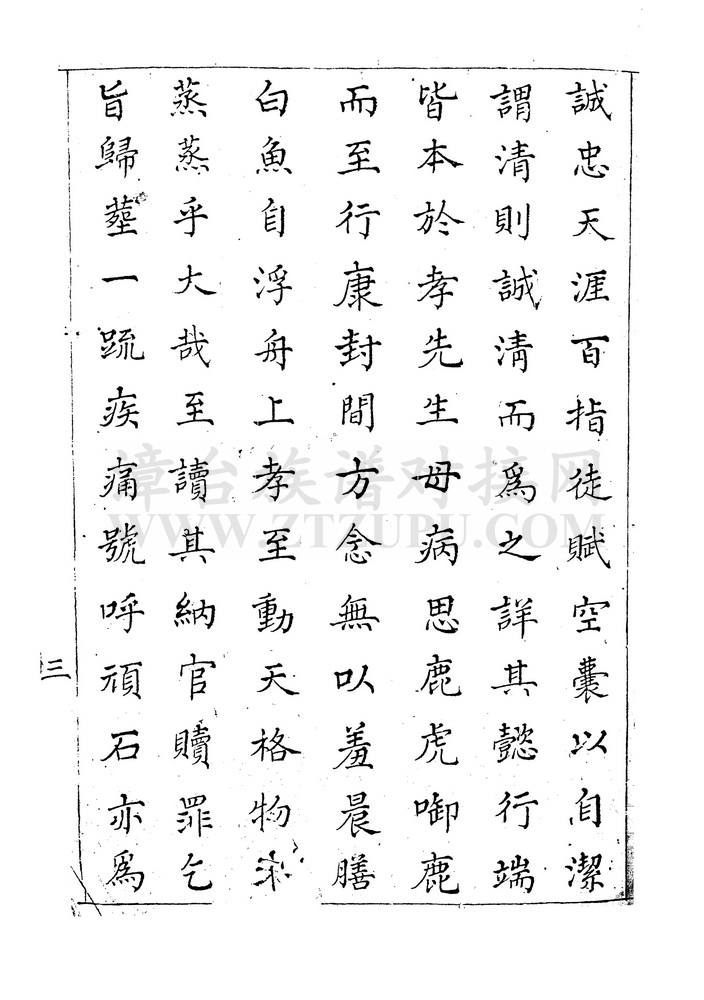 誠忠天涯百指徒賦空囊以自潔
謂清則誠清而為之詳其懿行端
皆本於孝先生母病思鹿虎啣鹿
而至行康封間方念無以羞晨膳
白魚自浮舟上孝至動天格物
蒸蒸乎大哉至讀其納官贖罪乞
旨歸塟一疏疾痛號呼頑石亦為
三
漳台族谱对接网
WWW.ZTZUPU.COM